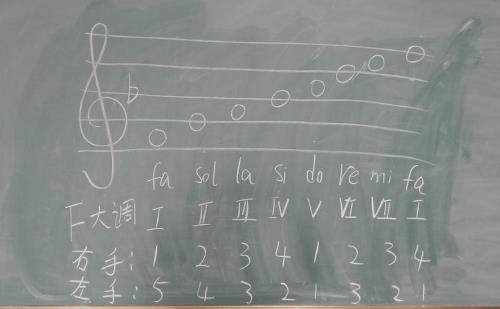 ♭
fa sol la si do re mi fa
F大调 I II III IV V VI VII I
右手: 1 2 3 4 1 2 3 4
左手: 5 4 3 2 1 3 2 1